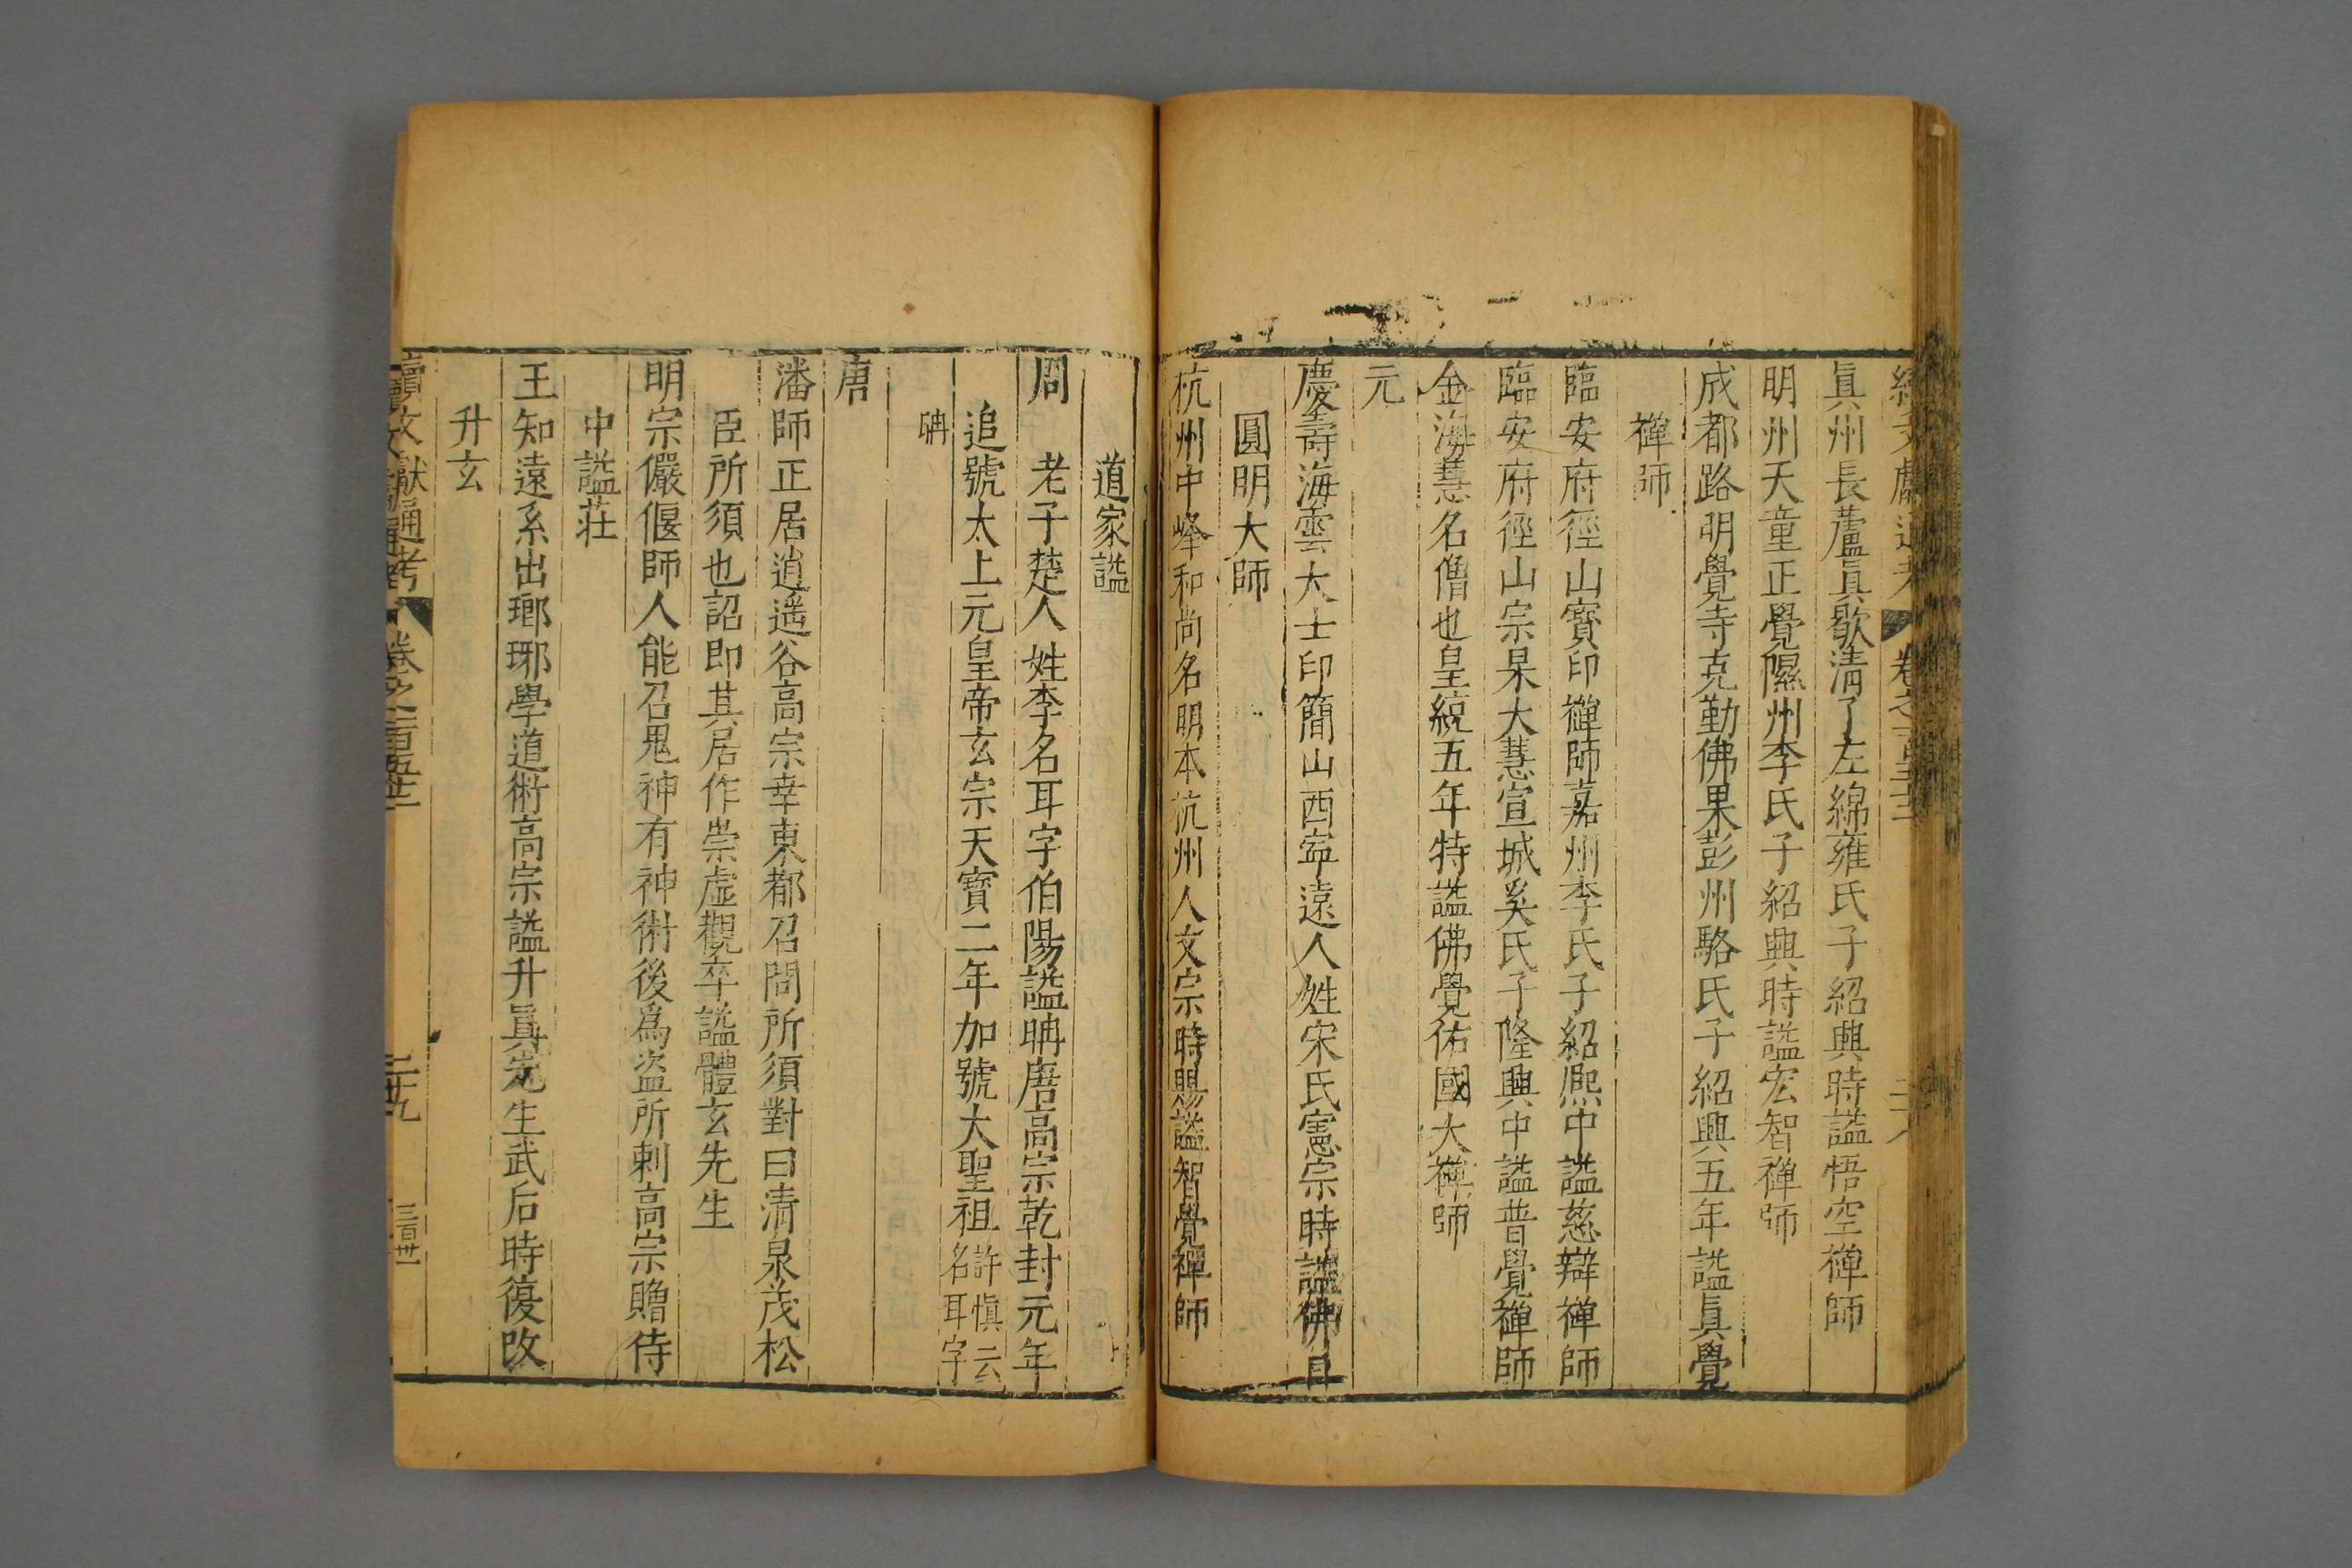 眞州長蘆眞歇清了左綿雍氏子紹興時謚悟空禅師
明州天童正覺隰州李氏子紹興時謚宏智禅師
成都路明覺寺克勤佛果彭州駱氏子紹興五年謚眞覺
禅師
臨安府徑山寳印禅師嘉州李氏子紹熈中謚慈辯禅師
臨安府徑山宗杲大慧宣城奚氏子隆興中謚普覺禅師
金海慧名僧也皇統五年特謚佛覺佑國大禅師
元
慶壽海雲大士印簡山西寜遠人姓宋氏憲宗時謚佛日
圓明大師
杭州中峰和尚名明本杭州人文宗時賜謚智覺禪師
道家謚
周　老子楚人姓李名耳字伯陽謚聃唐高宗乾封元年
追號太上元皇帝玄宗天寳二年加號大聖祖許愼云名耳字
聃
唐
潘師正居逍遥谷高宗幸東都召問所須對曰清泉茂松
臣所須也詔即其居作崇虚觀卒謚體玄先生
明宗儼偃師人能召鬼神有神術後爲盗所刺高宗贈侍
中謚莊
王知遠系出瑯琊學道術高宗謚升眞先生武后時復改
升玄
續文獻通考　卷之一百五十二　二十九　三百卅一